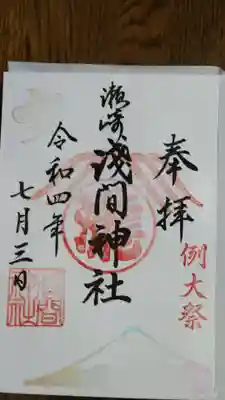 奉拝
例大祭
瀬崎
浅間神社
令和四年
七月三日